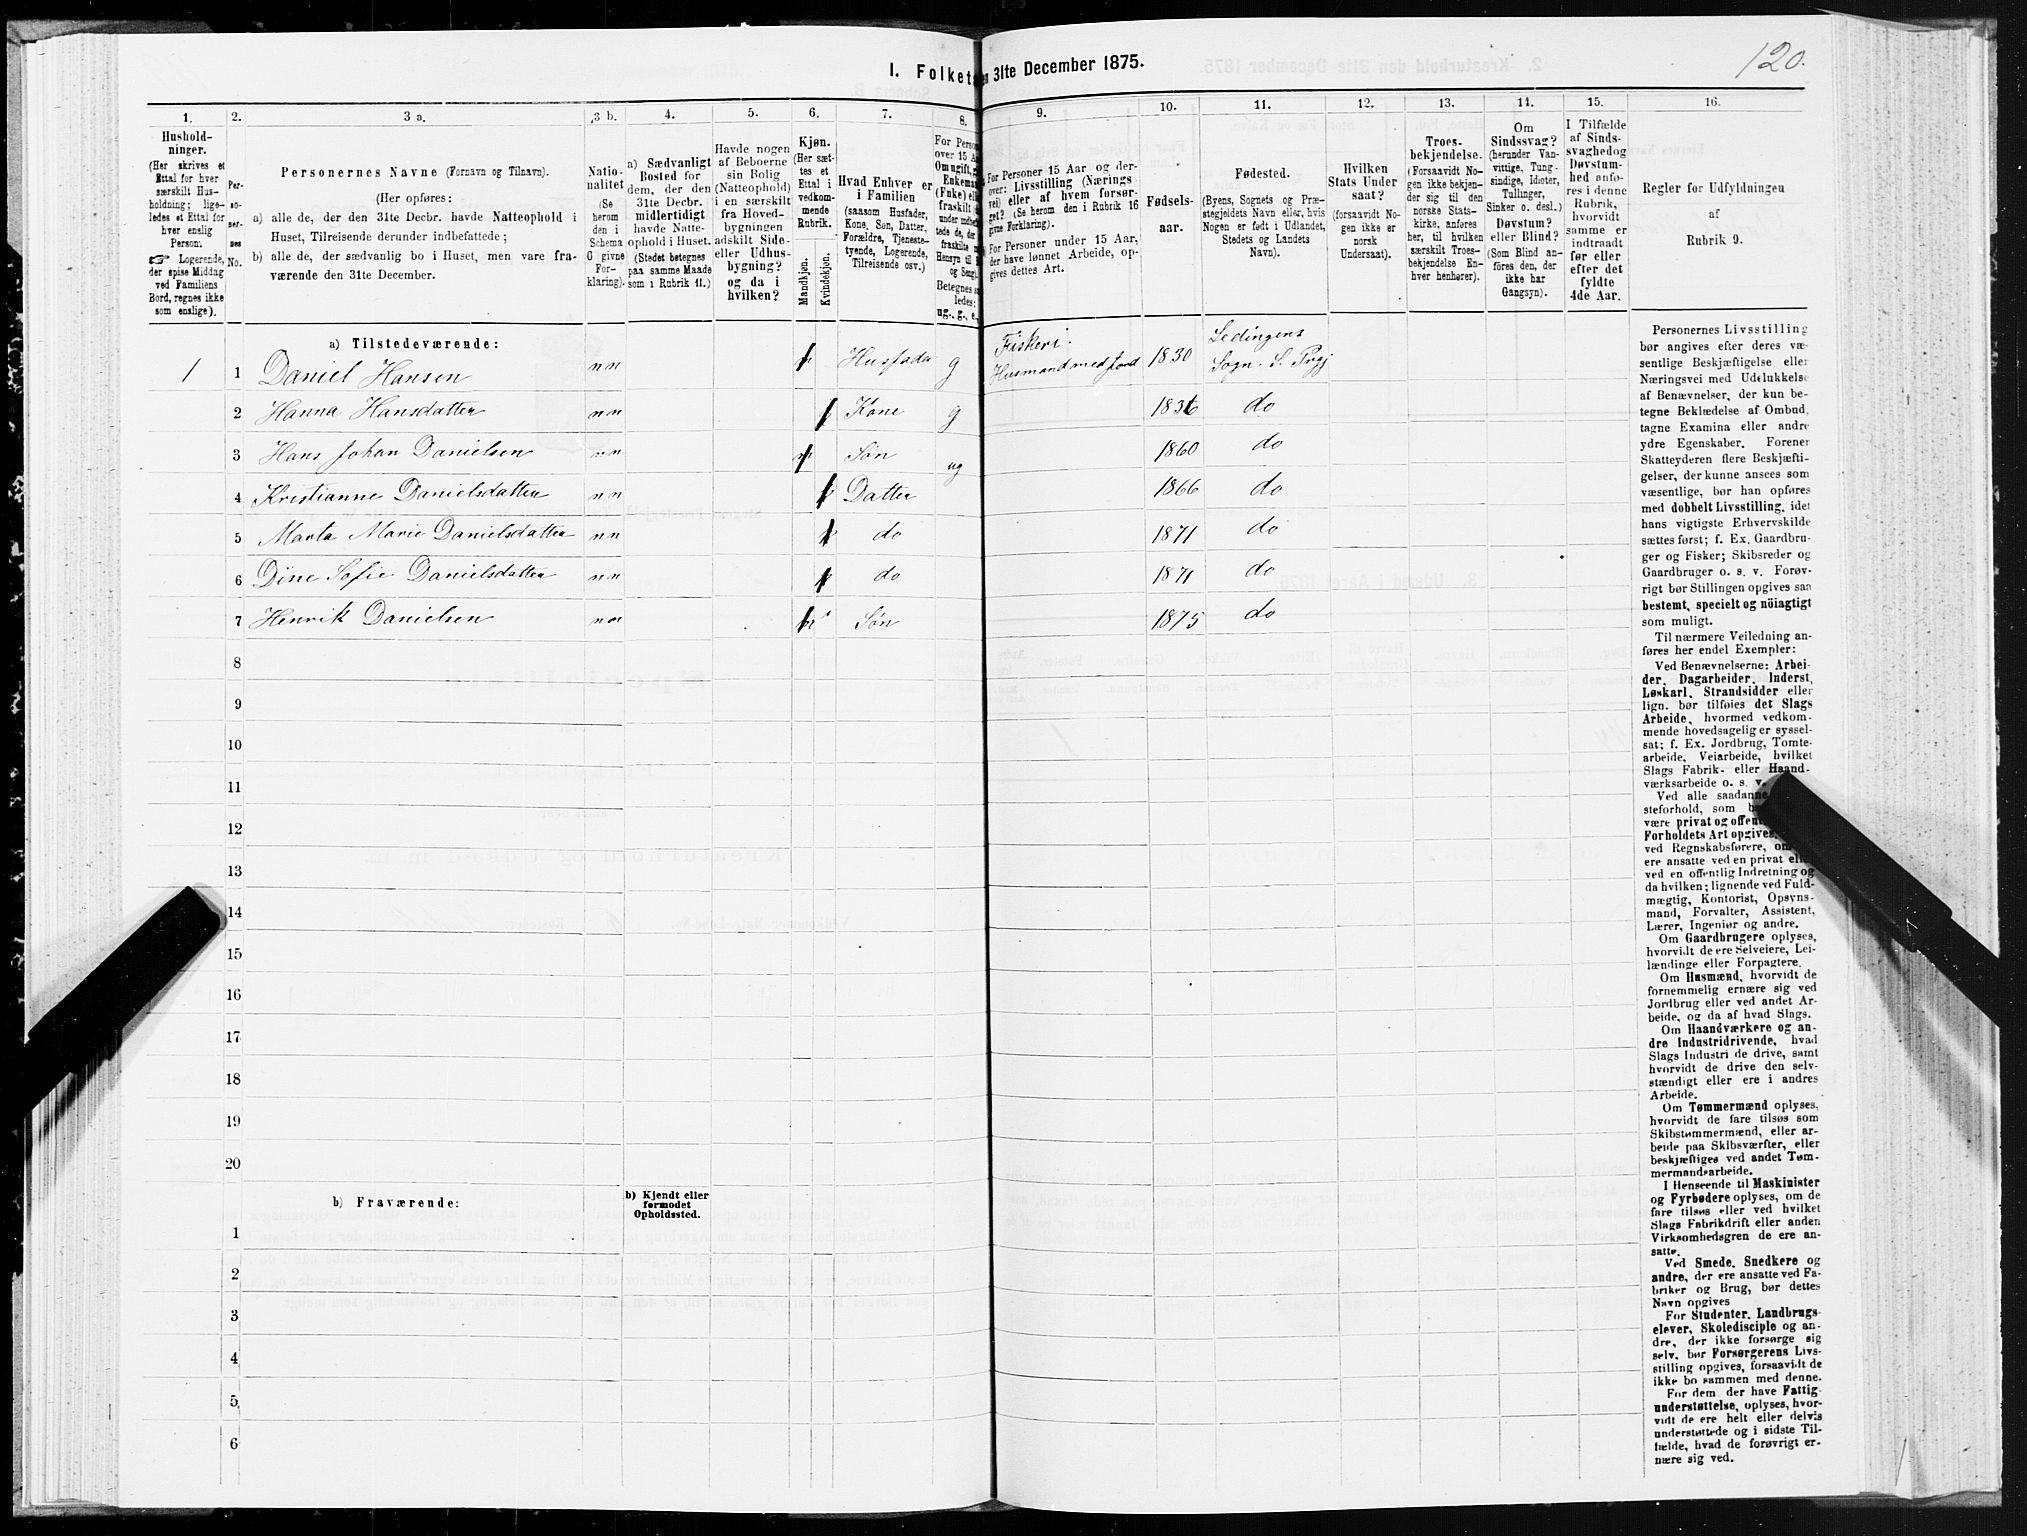 120.
I. Folketæ
en 31te December 1875.
1.
Hushold-
ninger.
(Her skrives et
Ettal for hver
særskilt Hus-
holdning; lige-
ledes et Ettal for
hver enslig
Person.
☞ Logerende,
der spise Middag
ved Familiens
Bord, regnes ikke
som enslige).
2.
Per-
so-
ner-
nes
No.
3 a.
Personernes Navne (Fornavn og Tilnavn).
(Her opføres:
a) alle de, der den 31te Decbr. havde Natteophold i
Huset, Tilreisende derunder indbefattede;
b) alle de, der sædvanlig bo i Huset, men vare fra-
værende den 31te December.
3 b.
Natio-
nalitet
(Se
herom
den i
Schema
G givne
For-
klaring).
4.
a) Sædvanligt
Bosted for
dem, der den
31te Decbr.
midlertidigt
havde Natte-
ophold i Huset.
(Stedet betegnes
paa samme Maade
som i Rubrik 11.)
5.
Havde nogen
af Beboerne
sin Bolig
(Natteophold)
i en særskilt
fra Hoved-
bygningen
adskilt Side-
eller Udhus-
bygning?
og da i
hvilken?
6.
Kjøn.
(Her sæt-
tes et
Ettal i
vedkom-
mende
Rubrik.
Mandkjøn.
Kvindekjøn.
7.
Hvad Enhver er
i Familien
(saasom Husfader,
Kone, Søn, Datter,
Forældre, Tjeneste-
tyende, Logerende,
Tilreisende osv.)
8.
For Person
over 15 A
Om ugift, g
Enkeman
(Enke) el
fraskilt
Betegnes s
ledes:
ug., g., e.,
9.
For Personer 15 Aar og der-
over: Livsstilling (Nærings
vei) eller af hvem forsør-
get? (Se herom den i Rubrik 16
givne Forklaring).
For Personer under 15 Aar,
der have lønnet Arbeide, op-
gives dettes Art.
10.
Fødsels-
aar.
11.
Fødested.
(Byens, Sognets og Præ-
stegjeldets Navn eller, hvis
Nogen er født i Udlandet,
Stedets og Landets
Navn).
12.
Hvilken
Stats Under
saat?
(forsaavidt No-
gen ikke er
norsk
Undersaat).
13.
Troes-
bekjendelse.
(Forsaavidt No-
gen ikke bekjen-
der sig til den
norske Stats-
kirke, anføres
her, til hvilken
særskilt Troes-
bekjendelse En-
hver henhører).
14.
Om
Sindssvag?
(herunder Van-
vittige, Tung-
sindige, Idioter,
Tullinger,
Sinker o. desl.)
Døvstum?
eller Blind?
(Som Blind an-
føres den, der
ikke har
Gangsyn).
15.
I Tilfælde
af Sinds-
svaghedog
Døvstum-
hed anfø-
res i denne
Rubrik,
hvorvidt
samme er
indtraadt
før eller
efter det
fyldte
4de Aar.
16.
Regler for Udfyldningen
af
Rubrik 9.
a) Tilstedeværende:
1 1 Daniel Hansen nn Husfader g Fiskeri. Husmand med Jord 1830 Sogn.
2 Hanna Hansdatter nn Kone g do
3 Hans Johan Danielsen nn Søn ug 1860 do
4 Kristianne Danielsdatter nn Datter 1866 do
5 Marta Marie Danielsdatter nn do 1871 do
6 Dine Sofie Danielsdatter nn do 1871 do
7 Henrik Danielsen nn Søn 1875 do
8
9
10
11
12
13
14
15
16
17
18
19
20
b) Fraværende:
b) Kjendt eller
formodet
Opholdssted.
1
2
3
4
5
6
Personernes Livsstilling
bør angives efter deres væ-
sentlige Beskjæftigelse eller
Næringsvei med Udelukkelse
af Benævnelser, der kun be-
tegne Beklædelse af Ombud,
tagne Examina eller andre
ydre Egenskaber. Forener
Skatteyderen flere Beskjæfti-
gelser, der kunne ansees som
væsentlige, bør han opføres
med dobbelt Livsstilling, idet
hans vigtigste Erhvervskilde
sættes først; f. Ex. Gaardbru-
ger og Fisker; Skibsreder og
Gaardbruger o. s. v. Forøv-
rigt bør Stillingen opgives saa
bestemt, specielt og nöiagtigt
som muligt.
Til nærmere Veiledning an-
føres her endel Exempler:
Ved Benævnelserne: Arbei-
der, Dagarbeider, Inderst,
Løskarl, Strandsidder eller
lign. bør tilføies det Slags
Arbeide, hvormed vedkom-
mende hovedsagelig er syssel-
sat; f. Ex. Jordbrug, Tomte-
arbeide, Veiarbeide, hvilket
Slags Fabrik- eller Haand-
værksarbeide o. s. v.
Ved alle saadanne
steforhold, som b
være privat og offen
Forholdets Art opgives.
ved Regnskabsførere, om
ere ansatte ved en privat elle
ved en offentlig Indretning og
da hvilken; lignende ved Fuld-
mægtig, Kontorist, Opsyns-
mand, Forvalter, Assistent,
Lærer, Ingeniør og andre.
Om Gaardbrugere oplyses,
hvorvidt de ere Selveiere, Lei-
lændinge eller Forpagtere.
Om Husmænd, hvorvidt de
fornemmelig ernære sig ved
Jordbrug eller ved andet Ar-
beide, og da af hvad Slags.
Om Haandværkere og an-
dre Industridrivende, hvad
Slags Industri de drive, samt
hvorvidt de drive den selv-
stændigt eller ere i andres
Arbeide.
Om Tømmermænd oplyses,
hvorvidt de fare tilsøs som
Skibstømmermænd, eller ar-
beide paa Skibsværfter, eller
beskjæftiges ved andet Tøm-
mermandsarbeide.
I Henseende til Maskinister
og Fyrbødere oplyses, om de
fare tilsøs eller ved hvilket
Slags Fabrikdrift eller anden
Virksomhedsgren de ere an-
satte.
Ved Smede, Snedkere og
andre, der ere ansatte ved Fa-
briker og Brug, bør dettes
Navn opgives
For Studenter, Landbrugs-
elever, Skoledisciple og an-
dre, der ikke forsørge sig
selv, bør Forsørgerens Livs-
stilling opgives, forsaavidt de
ikke bo sammen med denne.
For dem, der have Fattig-
understøttelse, oplyses, hvor-
vidt de ere helt eller delvis
understøttede og i sidste Til-
fælde, hvad de forøvrigt er-
nære sig ved.